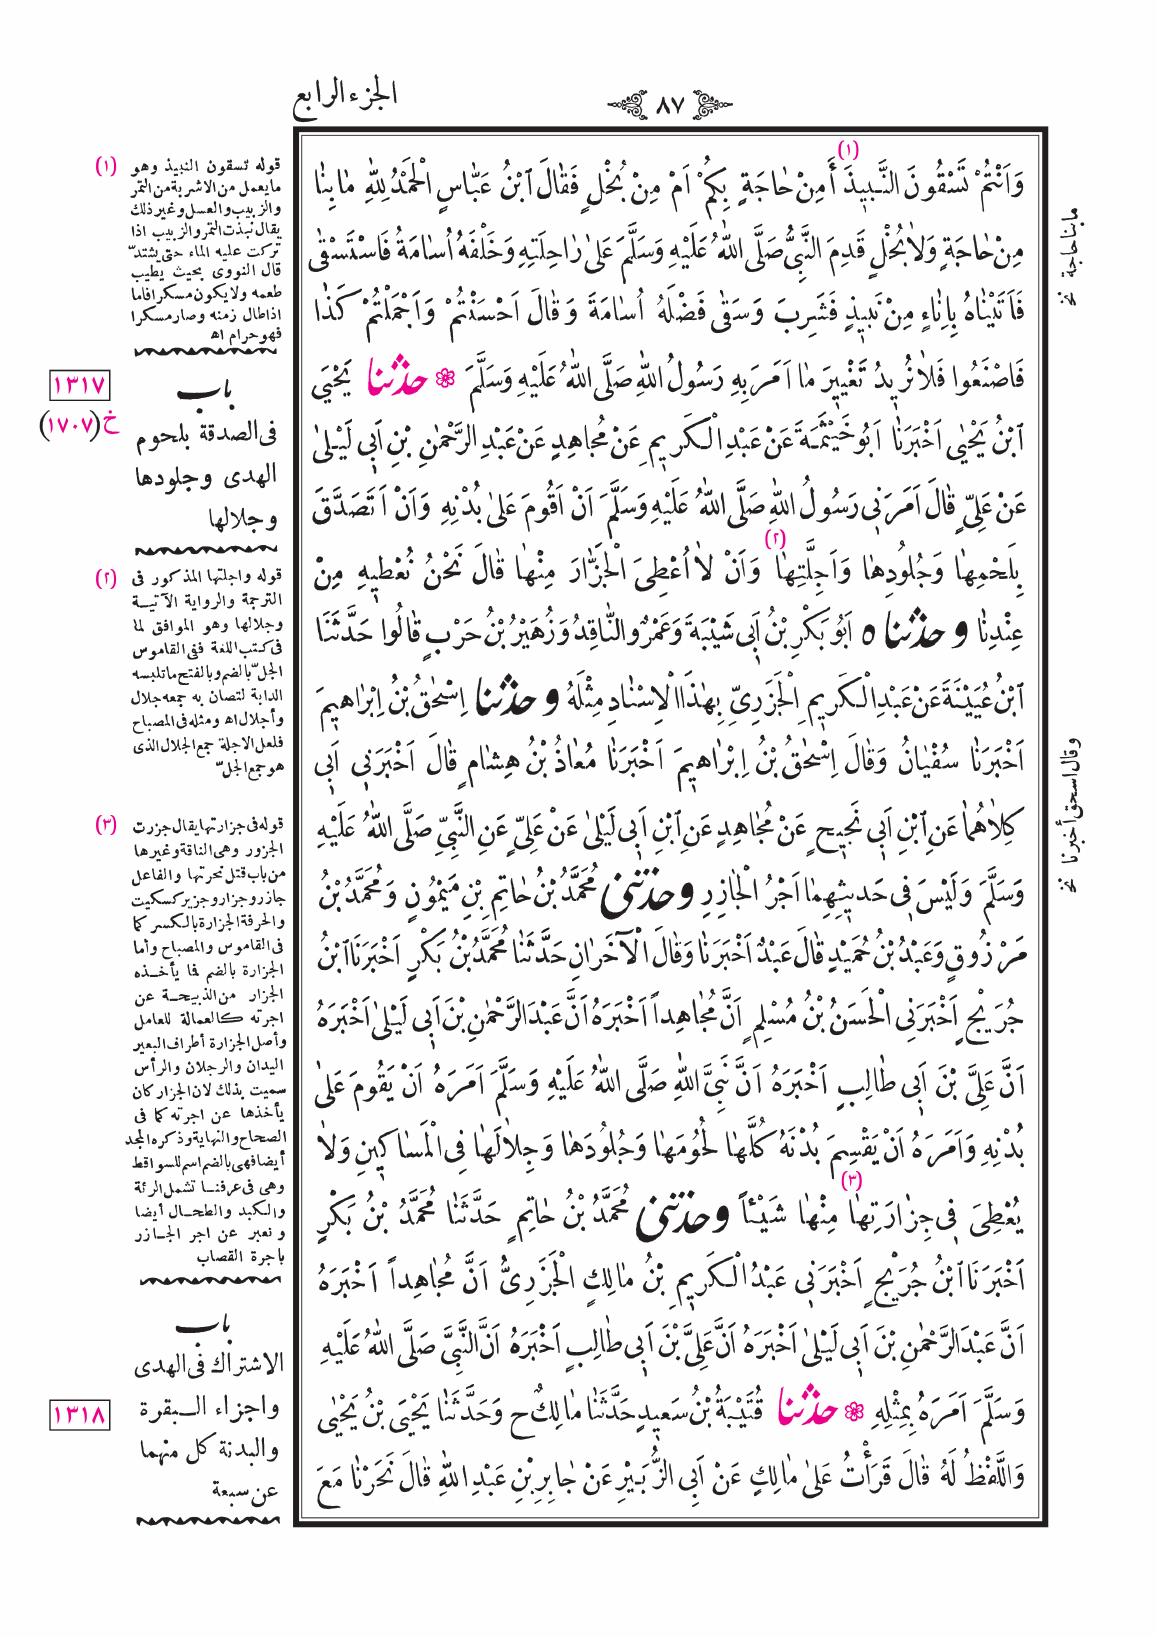 ٨٧
الجزء الرابع
وَاَنْتُمْ تَسْقُونَ النَّبِيذَ (١) أَمِنْ حَاجَةٍ بِكُمْ اَمْ مِنْ بُخْلٍ فَقَالَ ابْنُ عَبَّاسٍ الْحَمْدُ لِلّٰهِ مَا بِنَا
مِنْ حَاجَةٍ وَلَا بُخْلٍ قَدِمَ النَّبِيُّ صَلَّى اللّٰهُ عَلَيْهِ وَسَلَّمَ عَلىٰ رَاحِلَتِهِ وَخَلْفَهُ اُسَامَةُ فَاسْتَسْقٰى
فَاَتَيْنَاهُ بِاِنَاءٍ مِنْ نَبِيذٍ فَشَرِبَ وَسَقٰى فَضْلَهُ اُسَامَةَ وَقَالَ اَحْسَنْتُمْ وَاَجْمَلْتُمْ كَذَا
فَاصْنَعُوا فَلَا نُرِيدُ تَغْيِيرَ مَا اَمَرَ بِهِ رَسُولُ اللّٰهِ صَلَّى اللّٰهُ عَلَيْهِ وَسَلَّمَ ❁ حدثنا يَحْيَى
ابْنُ يَحْيٰى اَخْبَرَنَا اَبُو خَيْثَمَةَ عَنْ عَبْدِ الْكَرِيمِ عَنْ مُجَاهِدٍ عَنْ عَبْدِ الرَّحْمٰنِ بْنِ اَبِي لَيْلىٰ
عَنْ عَلِيٍّ قَالَ اَمَرَنِي رَسُولُ اللّٰهِ صَلَّى اللّٰهُ عَلَيْهِ وَسَلَّمَ اَنْ اَقُومَ عَلىٰ بُدْنِهِ وَاَنْ اَتَصَدَّقَ
بِلَحْمِهَا وَجُلُودِهَا وَاَجِلَّتِهَا (٢) وَاَنْ لَا اُعْطِيَ الْجَزَّارَ مِنْهَا قَالَ نَحْنُ نُعْطِيهِ مِنْ
عِنْدِنَا وحدثناه اَبُو بَكْرِ بْنُ اَبِي شَيْبَةَ وَعَمْرٌو النَّاقِدُ وَزُهَيْرُ بْنُ حَرْبٍ قَالُوا حَدَّثَنَا
ابْنُ عُيَيْنَةَ عَنْ عَبْدِ الْكَرِيمِ الْجَزَرِيِّ بِهٰذَا الْاِسْنَادِ مِثْلَهُ وحدثنا اِسْحٰقُ بْنُ اِبْرَاهِيمَ
اَخْبَرَنَا سُفْيَانُ وَقَالَ اِسْحٰقُ بْنُ اِبْرَاهِيمَ اَخْبَرَنَا مُعَاذُ بْنُ هِشَامٍ قَالَ اَخْبَرَنِي اَبِي
كِلَاهُمَا عَنِ ابْنِ اَبِي نَجِيحٍ عَنْ مُجَاهِدٍ عَنِ ابْنِ اَبِي لَيْلىٰ عَنْ عَلِيٍّ عَنِ النَّبِيِّ صَلَّى اللّٰهُ عَلَيْهِ
وَسَلَّمَ وَلَيْسَ فِي حَدِيثِهِمَا اَجْرُ الْجَازِرِ وحدثنى مُحَمَّدُ بْنُ حَاتِمِ بْنِ مَيْمُونٍ وَمُحَمَّدُ بْنُ
مَرْزُوقٍ وَعَبْدُ بْنُ حُمَيْدٍ قَالَ عَبْدٌ اَخْبَرَنَا وَقَالَ الْآخَرَانِ حَدَّثَنَا مُحَمَّدُ بْنُ بَكْرٍ اَخْبَرَنَا ابْنُ
جُرَيْجٍ اَخْبَرَنِي الْحَسَنُ بْنُ مُسْلِمٍ اَنَّ مُجَاهِداً اَخْبَرَهُ اَنَّ عَبْدَ الرَّحْمٰنِ بْنَ اَبِي لَيْلىٰ اَخْبَرَهُ
اَنَّ عَلِيَّ بْنَ اَبِي طَالِبٍ اَخْبَرَهُ اَنَّ نَبِيَّ اللّٰهِ صَلَّى اللّٰهُ عَلَيْهِ وَسَلَّمَ اَمَرَهُ اَنْ يَقُومَ عَلىٰ
بُدْنِهِ وَاَمَرَهُ اَنْ يَقْسِمَ بُدْنَهُ كُلَّهَا لُحُومَهَا وَجُلُودَهَا وَجِلَالَهَا فِي الْمَسَاكِينِ وَلَا
يُعْطِيَ فِي جِزَارَتِهَا (٣) مِنْهَا شَيْئاً وحدثنى مُحَمَّدُ بْنُ حَاتِمٍ حَدَّثَنَا مُحَمَّدُ بْنُ بَكْرٍ
اَخْبَرَنَا ابْنُ جُرَيْجٍ اَخْبَرَنِي عَبْدُ الْكَرِيمِ بْنُ مَالِكٍ الْجَزَرِيُّ اَنَّ مُجَاهِداً اَخْبَرَهُ
اَنَّ عَبْدَ الرَّحْمٰنِ بْنَ اَبِي لَيْلىٰ اَخْبَرَهُ اَنَّ عَلِيَّ بْنَ اَبِي طَالِبٍ اَخْبَرَهُ اَنَّ النَّبِيَّ صَلَّى اللّٰهُ عَلَيْهِ
وَسَلَّمَ اَمَرَهُ بِمِثْلِهِ ❁ حدثنا قُتَيْبَةُ بْنُ سَعِيدٍ حَدَّثَنَا مَالِكٌ ح وَحَدَّثَنَا يَحْيَى بْنُ يَحْيٰى
وَاللَّفْظُ لَهُ قَالَ قَرَأْتُ عَلىٰ مَالِكٍ عَنْ اَبِي الزُّبَيْرِ عَنْ جَابِرِ بْنِ عَبْدِ اللّٰهِ قَالَ نَحَرْنَا مَعَ
ما بنا حاجة نخ
وقال اسحق أخبرنا نخ
(١) قوله تسقون النبيذ وهو
ما يعمل من الاشربة من التمر
والزبيب والعسل وغير ذلك
يقال نبذت التمر والزبيب اذا
تركت عليه الماء حتى يشتدّ
قال النووى بحيث يطيب
طعمه ولا يكون مسكرا فاما
اذا طال زمنه وصار مسكرا
فهو حرام اه
١٣١٧
خ (١٧٠٧)
باب
فى الصدقة بلحوم
الهدى وجلودها
وجلالها
(٢) قوله واجلتها المذكور فى
الترجمة والرواية الآتية
وجلالها وهو الموافق لما
فى كتب اللغة ففى القاموس
الجلّ بالضم وبالفتح ما تلبسه
الدابة لتصان به جمعه جلال
وأجلال اه ومثله فى المصباح
فلعل الاجلة جمع الجلال الذى
هو جمع الجلّ
(٣) قوله فى جزارتها يقال جزرت
الجزور وهى الناقة وغيرها
من باب قتل نحرتها والفاعل
جازر وجزار وجزير كسكيت
والحرفة الجزارة بالكسر كما
فى القاموس والمصباح وأما
الجزارة بالضم فما يأخذه
الجزار من الذبيحة عن
اجرته كالعمالة للعامل
وأصل الجزارة أطراف البعير
اليدان والرجلان والرأس
سميت بذلك لان الجزار كان
يأخذها عن اجرته كما فى
الصحاح والنهاية وذكره المجد
أيضا فهى بالضم اسم للسواقط
وهى فى عرفنا تشمل الرئة
والكبد والطحال أيضا
ونعبر عن اجر الجازر
باجرة القصاب
باب
الاشتراك فى الهدى
١٣١٨
واجزاء البقرة
والبدنة كل منهما
عن سبعة